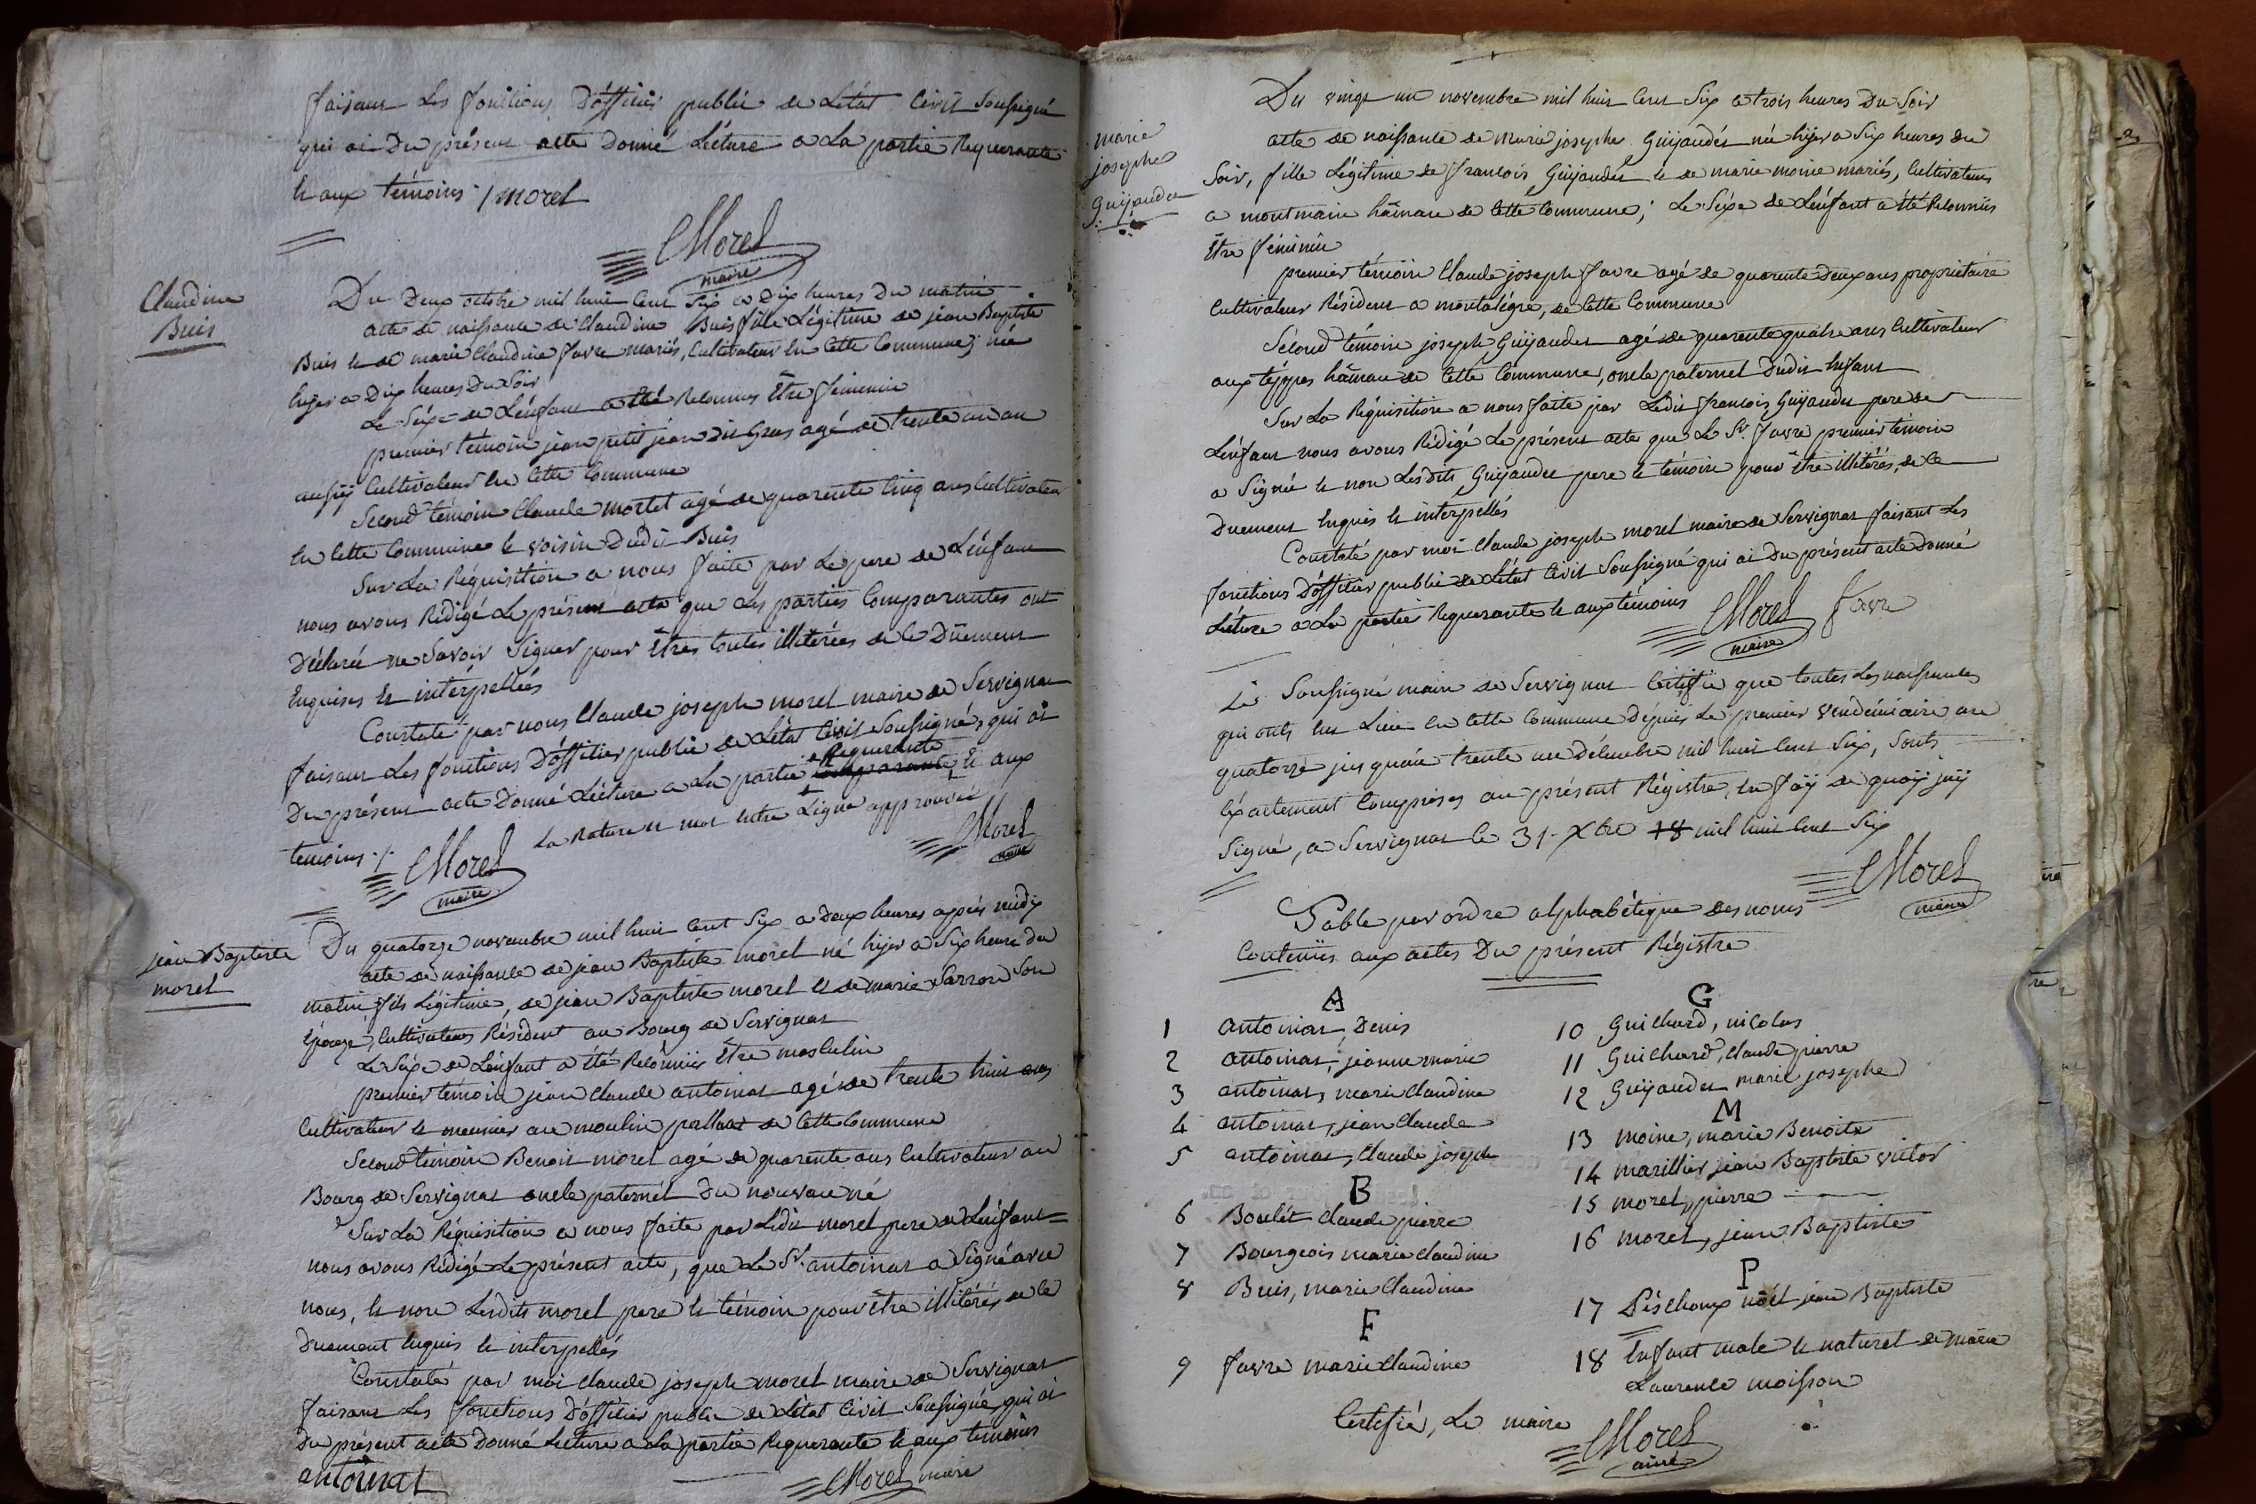 faisant Les fonctions D'officier public de Létat Civil Soussigné
qui ai Du présent acte Donné Lécture a La partie Requerante
et aux témoins ./ morel
Morel
maire
Claudine
Buis
Du Deux octobre mil huit Cent Six a Dix heures Du matin
acte de naissance de Claudine Buis fille Légitime de jean Baptiste
Buis et de marie Claudine favre mariés, Cultivateur En Cette Commune; née
hyer a Dix heures Du Soir
Le Séxe de Lénfant a été Reconnus Être féminin
premier témoin jean petit jean dit Gras agé de trente un an
aussy Cultivateur En Cette Commune
Second témoin Claude mortet agé de quarente Cinq ans Cultivateur
En Cette Commune et voisin Dudit Buis
Sur La Réquisition a nous faite par Le pere de Lénfant
nous avons Rédigé Le présent acte que Les parties Comparantes ont
Déclaré ne Savoir Signer pour Êtres toutes illitérées de Ce Dûement
Enquises Et intérpellées
Constaté par nous Claude joseph morel maire de Servignat
faisant Les fonctions D'officier public de Létat Civil Soussigné, qui ai
Requerante
Du présent acte Donné Lécture a La partie Comparante, Et aux
temoins ./.
La Rature et mot Entre Ligne approuvée
Morel
maire
Morel
maire
jean Baptiste
morel
Du quatorze novembre mil huit Cent Six a Deux heures après midy
acte de naissance de jean Baptiste morel né hyer a Six heure du
matin, fils Légitime, de jean Baptiste morel et de marie Sarron Son
Épouze, Cultivateurs Résident au Bourg de Servignat
Le Séxe de Lénfant a été Reconnus Être masculin
premier temoin jean Claude antoinat agé de trente huit ans
Cultivateur et meunier au moulin de Cette Commune
Second temoin Benoit morel agé de quarente ans Cultivateur au
Bourg de Servignat oncle paternél Du nouveau né
Sur La Réquisition a nous faite par Lédit morel pere de Lénfant
nous avons Rédigé Le présent acte, que Le Sr. antoinat a Signé avec
nous, Et non Lesdits morel pere Et témoin pour être illitérés de Ce
Duement Enquis Et interpellés
Constaté par moi Claude joseph morel maire de Servignat
faisant Les fonctions D'officier public de Létat Civil Soussigné, qui ai
Du présent acte Donné Lécture a La partie Requerante Et aux temoins
antoinat
Morel maire
marie
josephe
Guyaudet
Du vingt un novembre mil huit Cent Six a trois heures Du Soir
acte de naissance de marie josephe Guyaudet né hyer a Six heures du
Soir, fille Légitime de francois Guyaudet Et de marie moine mariés, Cultivateurs
a montmain hâmeau de Cette Commune; Le Séxe de Lénfant a été Reconnûs
Être féminin
premier témoin Claude joseph favre agé de quarente Deux ans propriétaire
Cultivateur Résident a montalégre, de Cette Commune
Sécond témoin joseph Guyaudet agé de quarente quatre ans Cultivateur
aux hâmeau de Cette Commune, oncle paternel Dudit Enfant
Sur La Réquisition a nous faite par Lédit francois Guyaudet pere de
Lénfant nous avons Rédigé Le présent acte que Le Sr. favre premier témoin
a Signé Et non Lesdits Guyaudet pere Et témoin pour être illitérés, de Ce
Duement Enquis Et intérpellés
Constaté par moi Claude joseph morel maire de Servignat faisant Les
fonctions D'officier public de Létat Civil Soussigné qui ai Du présent acte Donné
Lécture a La partie Requerante Et aux témoins
Morel
maire
favre
Le Soussigné maire de Servignat Certifie que toutes Les naissances
qui onts Eu Lieu En Cette Commune Dépuis Le premier vendémiaire an
quatorze jusqu'au trente un décembre mil huit Cent Six, Sonts
Éxactement Comprises au présent Régistre, En foÿ de quoÿ j'aÿ
Signé, a Servignat le 31 Xbre 18 mil huit Cent Six
Morel
maire
Table par ordre alphabétique des noms
Contenus aux actes Du présent Régistre
A
1 antoinat, Denis
2 antoinat, jeanne marie
3 antoinat, marie claudine
4 antoinat, jean claude
5 antoinat, Claude joseph
B
6 Boulét Claude pierre
7 Bourgeois marie Claudine
8 Buis, marie Claudine
F
9 favre marie Claudine
G
10 Guichard, nicolas
11 Guichard, Claude pierre
12 Guyaudet marie josephe
M
13 moine, marie Benoite
14 marillier jean Baptiste victor
15 morel, pierre
16 morel, jean Baptiste
P
17 Péschoux noël jean Baptiste
18 Enfant male Et naturel de marie
Laurence moisson
Certifié, Le maire
Morel